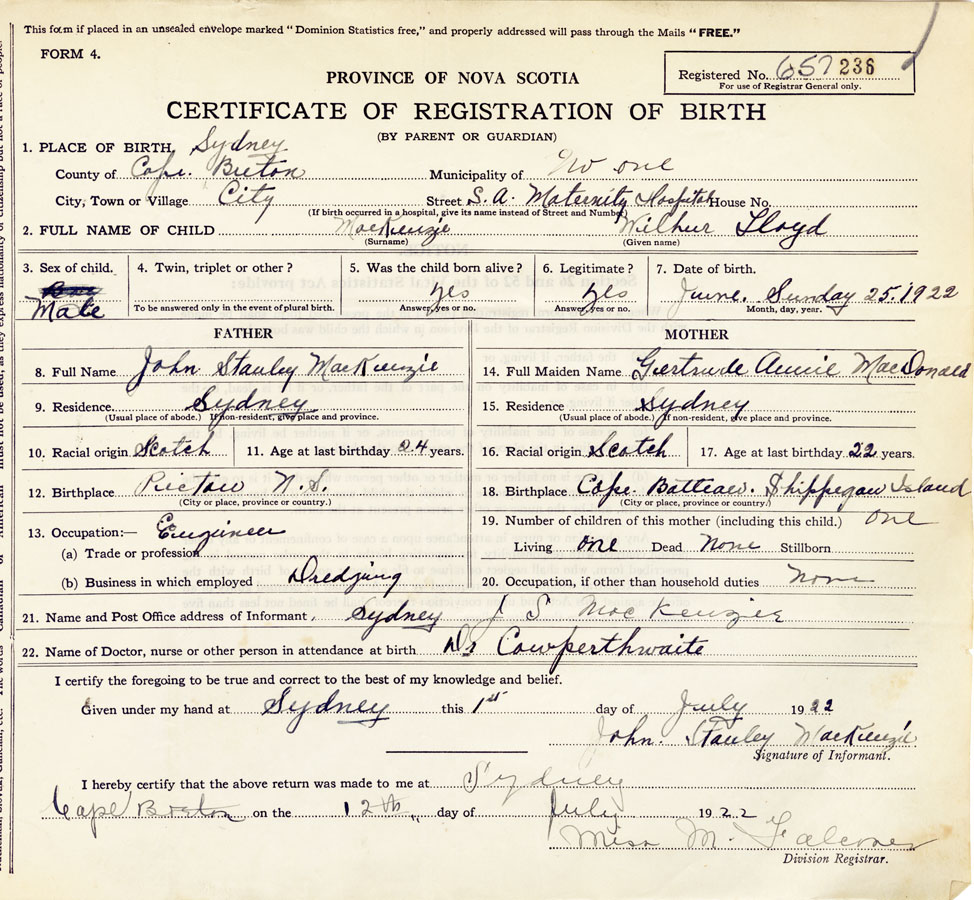 This form if placed in an unsealed envelope marked "Dominion Statistics free," and properly addressed will pass through the Mails "FREE."
FORM 4.
PROVINCE OF NOVA SCOTIA
Registered No. 657 236
For use of Registrar General only.
CERTIFICATE OF REGISTRATION OF BIRTH
(BY PARENT OR GUARDIAN)
1. PLACE OF BIRTH, Sydney
County of Cape Breton Municipality of No one
City, Town or Village City Street S. A. Maternity Hospital House No.
(If birth occurred in a hospital, give its name instead of Street and Number)
2. FULL NAME OF CHILD MacKenzie Wilbur Lloyd
(Surname) (Given name)
3. Sex of child. Male 4. Twin, triplet or other? 5. Was the child born alive? Yes 6. Legitimate? Yes 7. Date of birth. June. Sunday 25. 1922
To be answered only in the event of plural birth. Answer, yes or no. Answer, yes or no. Month, day, year.
FATHER MOTHER
8. Full Name John Stanley MacKenzie 14. Full Maiden Name Gertrude Annie MacDonald
9. Residence Sydney 15. Residence Sydney
(Usual place of abode.) If non-resident, give place and province. (Usual place of abode.) If non-resident, give place and province.
10. Racial origin Scotch 11. Age at last birthday 24 years. 16. Racial origin Scotch 17. Age at last birthday 22 years.
12. Birthplace Pictou N.S. 18. Birthplace Cape Batteau. Shippegan Island
(City or place, province or country.) (City or place, province or country.)
13. Occupation:— Engineer 19. Number of children of this mother (including this child.) one
(a) Trade or profession Living one Dead None Stillborn
(b) Business in which employed Dredging 20. Occupation, if other than household duties None
21. Name and Post Office address of Informant, Sydney J S MacKenzie
22. Name of Doctor, nurse or other person in attendance at birth Dr Cowperthwaite
I certify the foregoing to be true and correct to the best of my knowledge and belief.
Given under my hand at Sydney this 1st day of July 1922
John. Stanley MacKenzie
Signature of Informant.
I hereby certify that the above return was made to me at Sydney
Cape Breton on the 12th day of July 1922
Miss M. Falconer
Division Registrar.